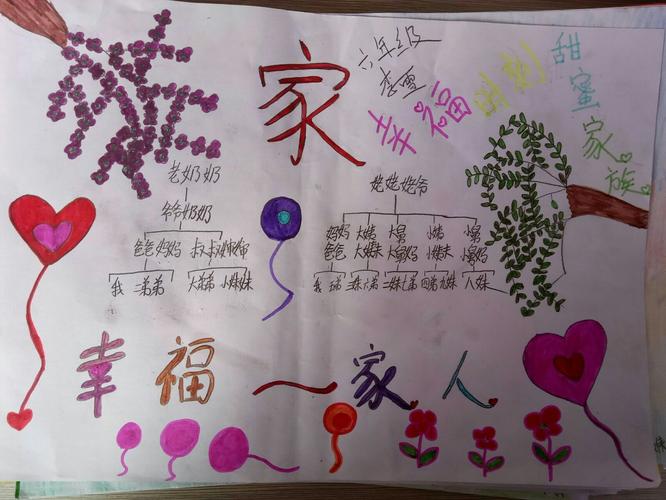 家
六年级
李雪
幸福时刻
甜蜜家族
老奶奶
爷爷奶奶
爸爸妈妈 叔叔婶婶
我 二弟弟 大弟弟 小妹妹
姥姥姥爷
妈妈 大姨 大舅 小姨 小舅
爸爸 大姨夫 大舅妈 小姨夫 小舅妈
我 二妹 七弟 四弟 九妹 八妹
幸福一家人